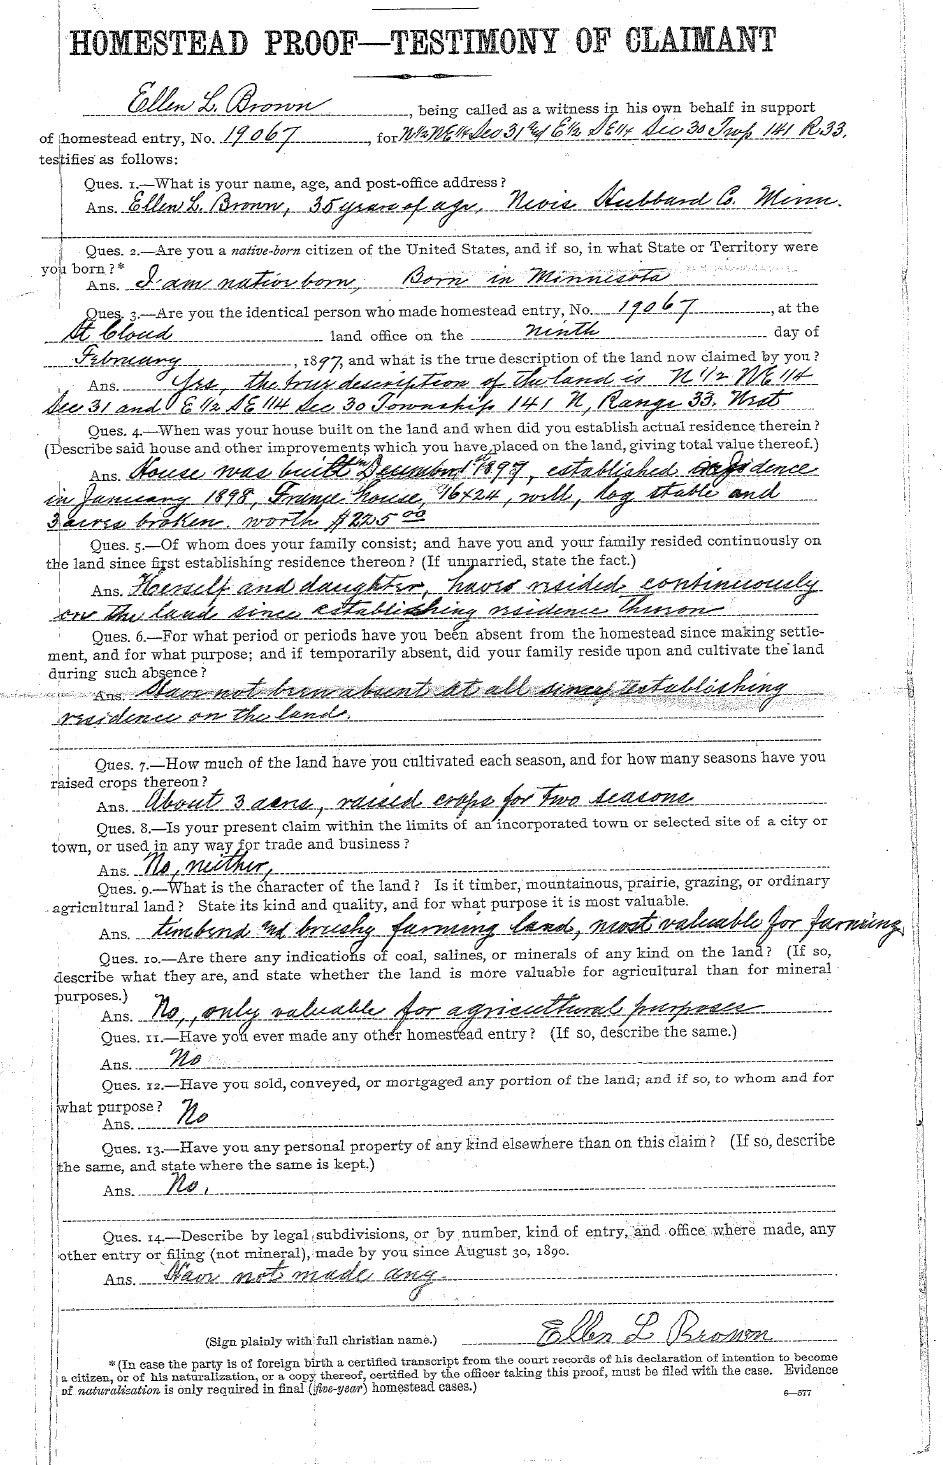 HOMESTEAD PROOF—TESTIMONY OF CLAIMANT
Ellen L. Brown, being called as a witness in his own behalf in support
of homestead entry, No. 19067, for N½ NE 1/4 Sec 31 and E½ SE 1/4 Sec 30 Twp 141 R 33.
testifies as follows:
Ques. 1.—What is your name, age, and post-office address?
Ans. Ellen L. Brown, 35 years of age, Nevis Hubbard Co. Minn.
Ques. 2.—Are you a native-born citizen of the United States, and if so, in what State or Territory were
you born?*
Ans. I am native born, Born in Minnesota
Ques. 3.—Are you the identical person who made homestead entry, No. 19067, at the
St Cloud land office on the ninth day of
February, 1897, and what is the true description of the land now claimed by you?
Ans. Yes, the true description of the land is N 1/2 NE 1/4
Sec 31 and E 1/2 SE 1/4 Sec 30 Township 141 N, Range 33. West
Ques. 4.—When was your house built on the land and when did you establish actual residence therein?
(Describe said house and other improvements which you have placed on the land, giving total value thereof.)
Ans. House was built in December 1st 1897, established residence
in January 1898, Frame house, 16x24, well, log stable and
3 acres broken. worth $225 00
Ques. 5.—Of whom does your family consist; and have you and your family resided continuously on
the land since first establishing residence thereon? (If unmarried, state the fact.)
Ans. Herself and daughter, have resided continuously
on the land since establishing residence thereon
Ques. 6.—For what period or periods have you been absent from the homestead since making settle-
ment, and for what purpose; and if temporarily absent, did your family reside upon and cultivate the land
during such absence?
Ans. Have not been absent at all since establishing
residence on the land.
Ques. 7.—How much of the land have you cultivated each season, and for how many seasons have you
raised crops thereon?
Ans. About 3 acres, raised crops for two seasons
Ques. 8.—Is your present claim within the limits of an incorporated town or selected site of a city or
town, or used in any way for trade and business?
Ans. No, neither,
Ques. 9.—What is the character of the land? Is it timber, mountainous, prairie, grazing, or ordinary
agricultural land? State its kind and quality, and for what purpose it is most valuable.
Ans. timbered and brushy farming land, most valuable for farming
Ques. 10.—Are there any indications of coal, salines, or minerals of any kind on the land? (If so,
describe what they are, and state whether the land is more valuable for agricultural than for mineral
purposes.)
Ans. No, only valuable for agricultural purposes
Ques. 11.—Have you ever made any other homestead entry? (If so, describe the same.)
Ans. No
Ques. 12.—Have you sold, conveyed, or mortgaged any portion of the land; and if so, to whom and for
what purpose?
Ans. No
Ques. 13.—Have you any personal property of any kind elsewhere than on this claim? (If so, describe
the same, and state where the same is kept.)
Ans. No,
Ques. 14.—Describe by legal subdivisions, or by number, kind of entry, and office where made, any
other entry or filing (not mineral), made by you since August 30, 1890.
Ans. Have not made any.
(Sign plainly with full christian name.) Ellen L Brown
*(In case the party is of foreign birth a certified transcript from the court records of his declaration of intention to become
a citizen, or of his naturalization, or a copy thereof, certified by the officer taking this proof, must be filed with the case. Evidence
of naturalization is only required in final (five-year) homestead cases.)
6—577